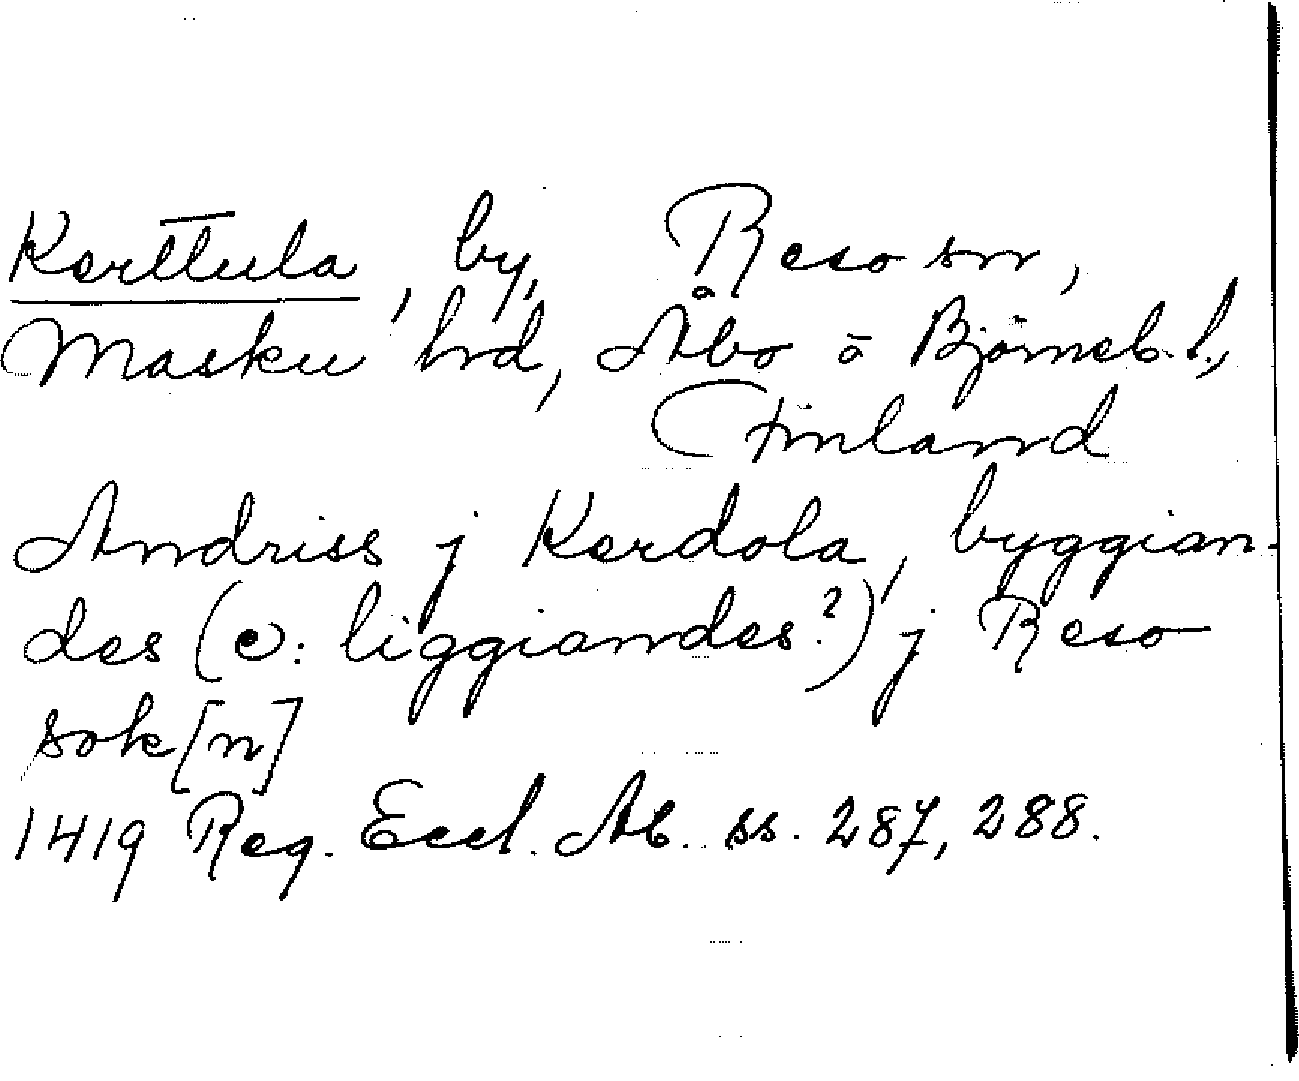 Kerttula, by, Reso sn,
Masku hrd, Åbo o Björneb. l.,
Finland
Andriss j Kerdola, byggian-
des (ɔ: liggiandes?) j Reso
sok[n]
1419 Reg. Eccl. Ab. ss. 287, 288.